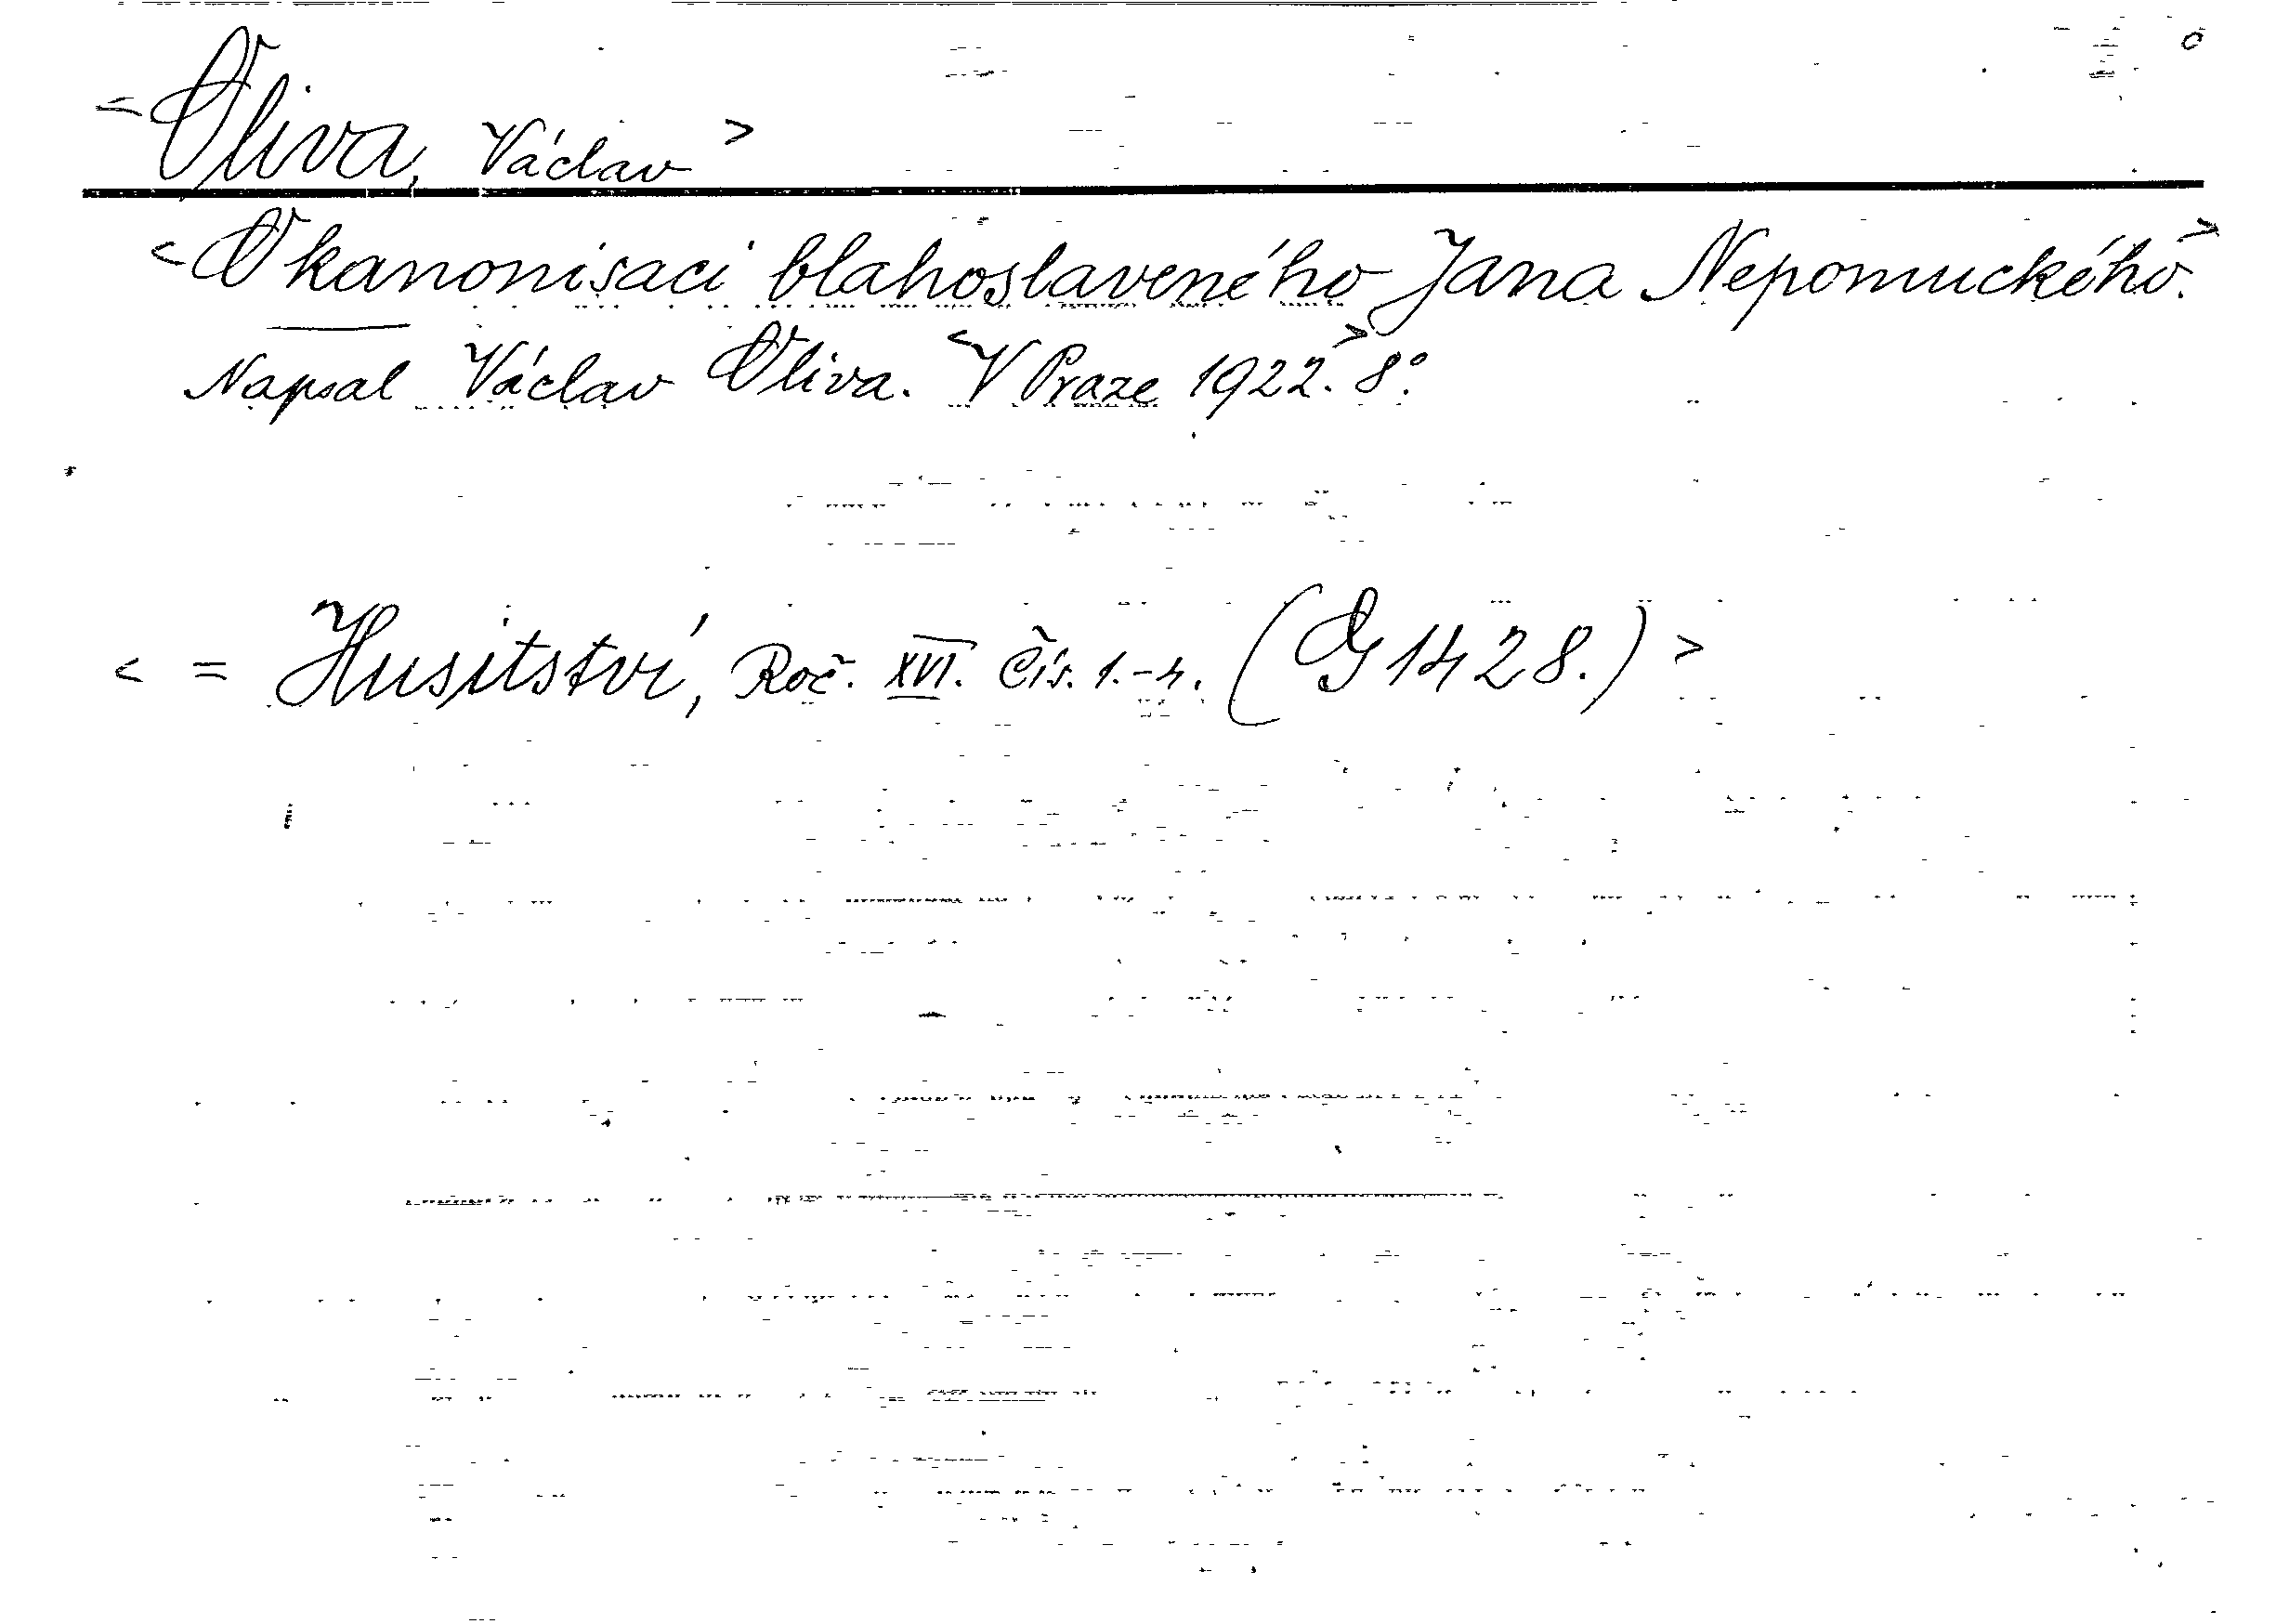 <Oliva, Václav>
<O kanonisaci blahoslaveného Jana Nepomuckého.>
Napsal Václav Oliva. <V Praze 1922.> 8°.
< = Husitství, Roč. XVI. Čís. 1.-4. (G 1428.) >